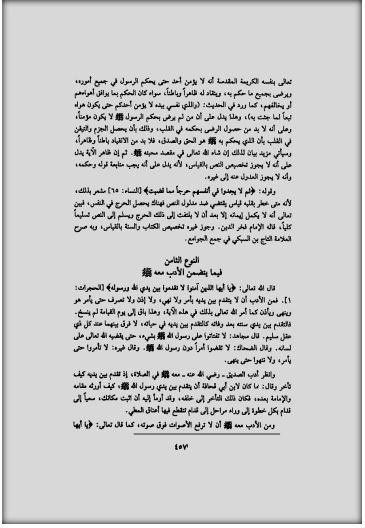 تعالى بنفسه الكريمة المقدسة أنه لا يؤمن أحد حتى يحكم الرسول في جميع أموره،
ويرضى بجميع ما حكم به، وينقاد له ظاهراً وباطناً، سواء كان الحكم بما يوافق أهواءهم
أو يخالفهم، كما ورد في الحديث: (والذي نفسي بيده لا يؤمن أحدكم حتى يكون هواه
تبعاً لما جئت به)، وهذا يدل على أن من لم يرض بحكم الرسول ﷺ لا يكون مؤمناً،
وعلى أنه لا بد من حصول الرضى بحكمه في القلب، وذلك بأن يحصل الجزم والتيقن
في القلب بأن الذي يحكم به ﷺ هو الحق والصدق، فلا بد من الانقياد باطناً وظاهراً،
وسيأتي مزيد بيان لذلك إن شاء الله تعالى في مقصد محبته ﷺ. ثم إن ظاهر الآية يدل
على أنه لا يجوز تخصيص النص بالقياس، لأنه يدل على أنه يجب متابعة قوله وحكمه،
وأنه لا يجوز العدول عنه إلى غيره.
وقوله: ﴿ثم لا يجدوا في أنفسهم حرجاً مما قضيت﴾ [النساء: ٦٥] مشعر بذلك،
لأنه متى خطر بقلبه قياس يقتضي ضد مدلول النص فهناك يحصل الحرج في النفس، فبين
تعالى أنه لا يكمل إيمانه إلا بعد أن لا يلتفت إلى ذلك الحرج ويسلم إلى النص تسليماً
كلياً، قاله الإمام فخر الدين. وجوز غيره تخصيص الكتاب والسنة بالقياس، وبه صرح
العلامة التاج بن السبكي في جمع الجوامع.
النوع الثامن
فيما يتضمن الأدب معه ﷺ
قال الله تعالى: ﴿يا أيها الذين آمنوا لا تقدموا بين يدي الله ورسوله﴾ [الحجرات:
١]. فمن الأدب أن لا يتقدم بين يديه بأمر ولا نهي، ولا إذن ولا تصرف حتى يأمر هو
وينهى ويأذن كما أمر الله تعالى بذلك في هذه الآية، وهذا باق إلى يوم القيامة لم ينسخ.
فالتقدم بين يدي سنته بعد وفاته كالتقدم بين يديه في حياته، لا فرق بينهما عند كل ذي
عقل سليم. قال مجاهد: لا تفتاتوا على رسول الله ﷺ بشيء، حتى يقضيه الله تعالى على
لسانه. وقال الضحاك: لا تقضوا أمراً دون رسول الله ﷺ. وقال غيره: لا تأمروا حتى
يأمر، ولا تنهوا حتى ينهى.
وانظر أدب الصديق ـ رضي الله عنه ـ معه ﷺ في الصلاة، إذ تقدم بين يديه كيف
تأخر وقال: ما كان لابن أبي قحافة أن يتقدم بين يدي رسول الله ﷺ، كيف أورثه مقامه
والإمامة بعده، فكان ذلك التأخر إلى خلفه، وقد أومأ إليه أن اثبت مكانك، سعياً إلى
قدام بكل خطوة إلى وراء مراحل إلى قدام تنقطع فيها أعناق المطي.
ومن الأدب معه ﷺ أن لا ترفع الأصوات فوق صوته، كما قال تعالى: ﴿يا أيها
٤٥٧